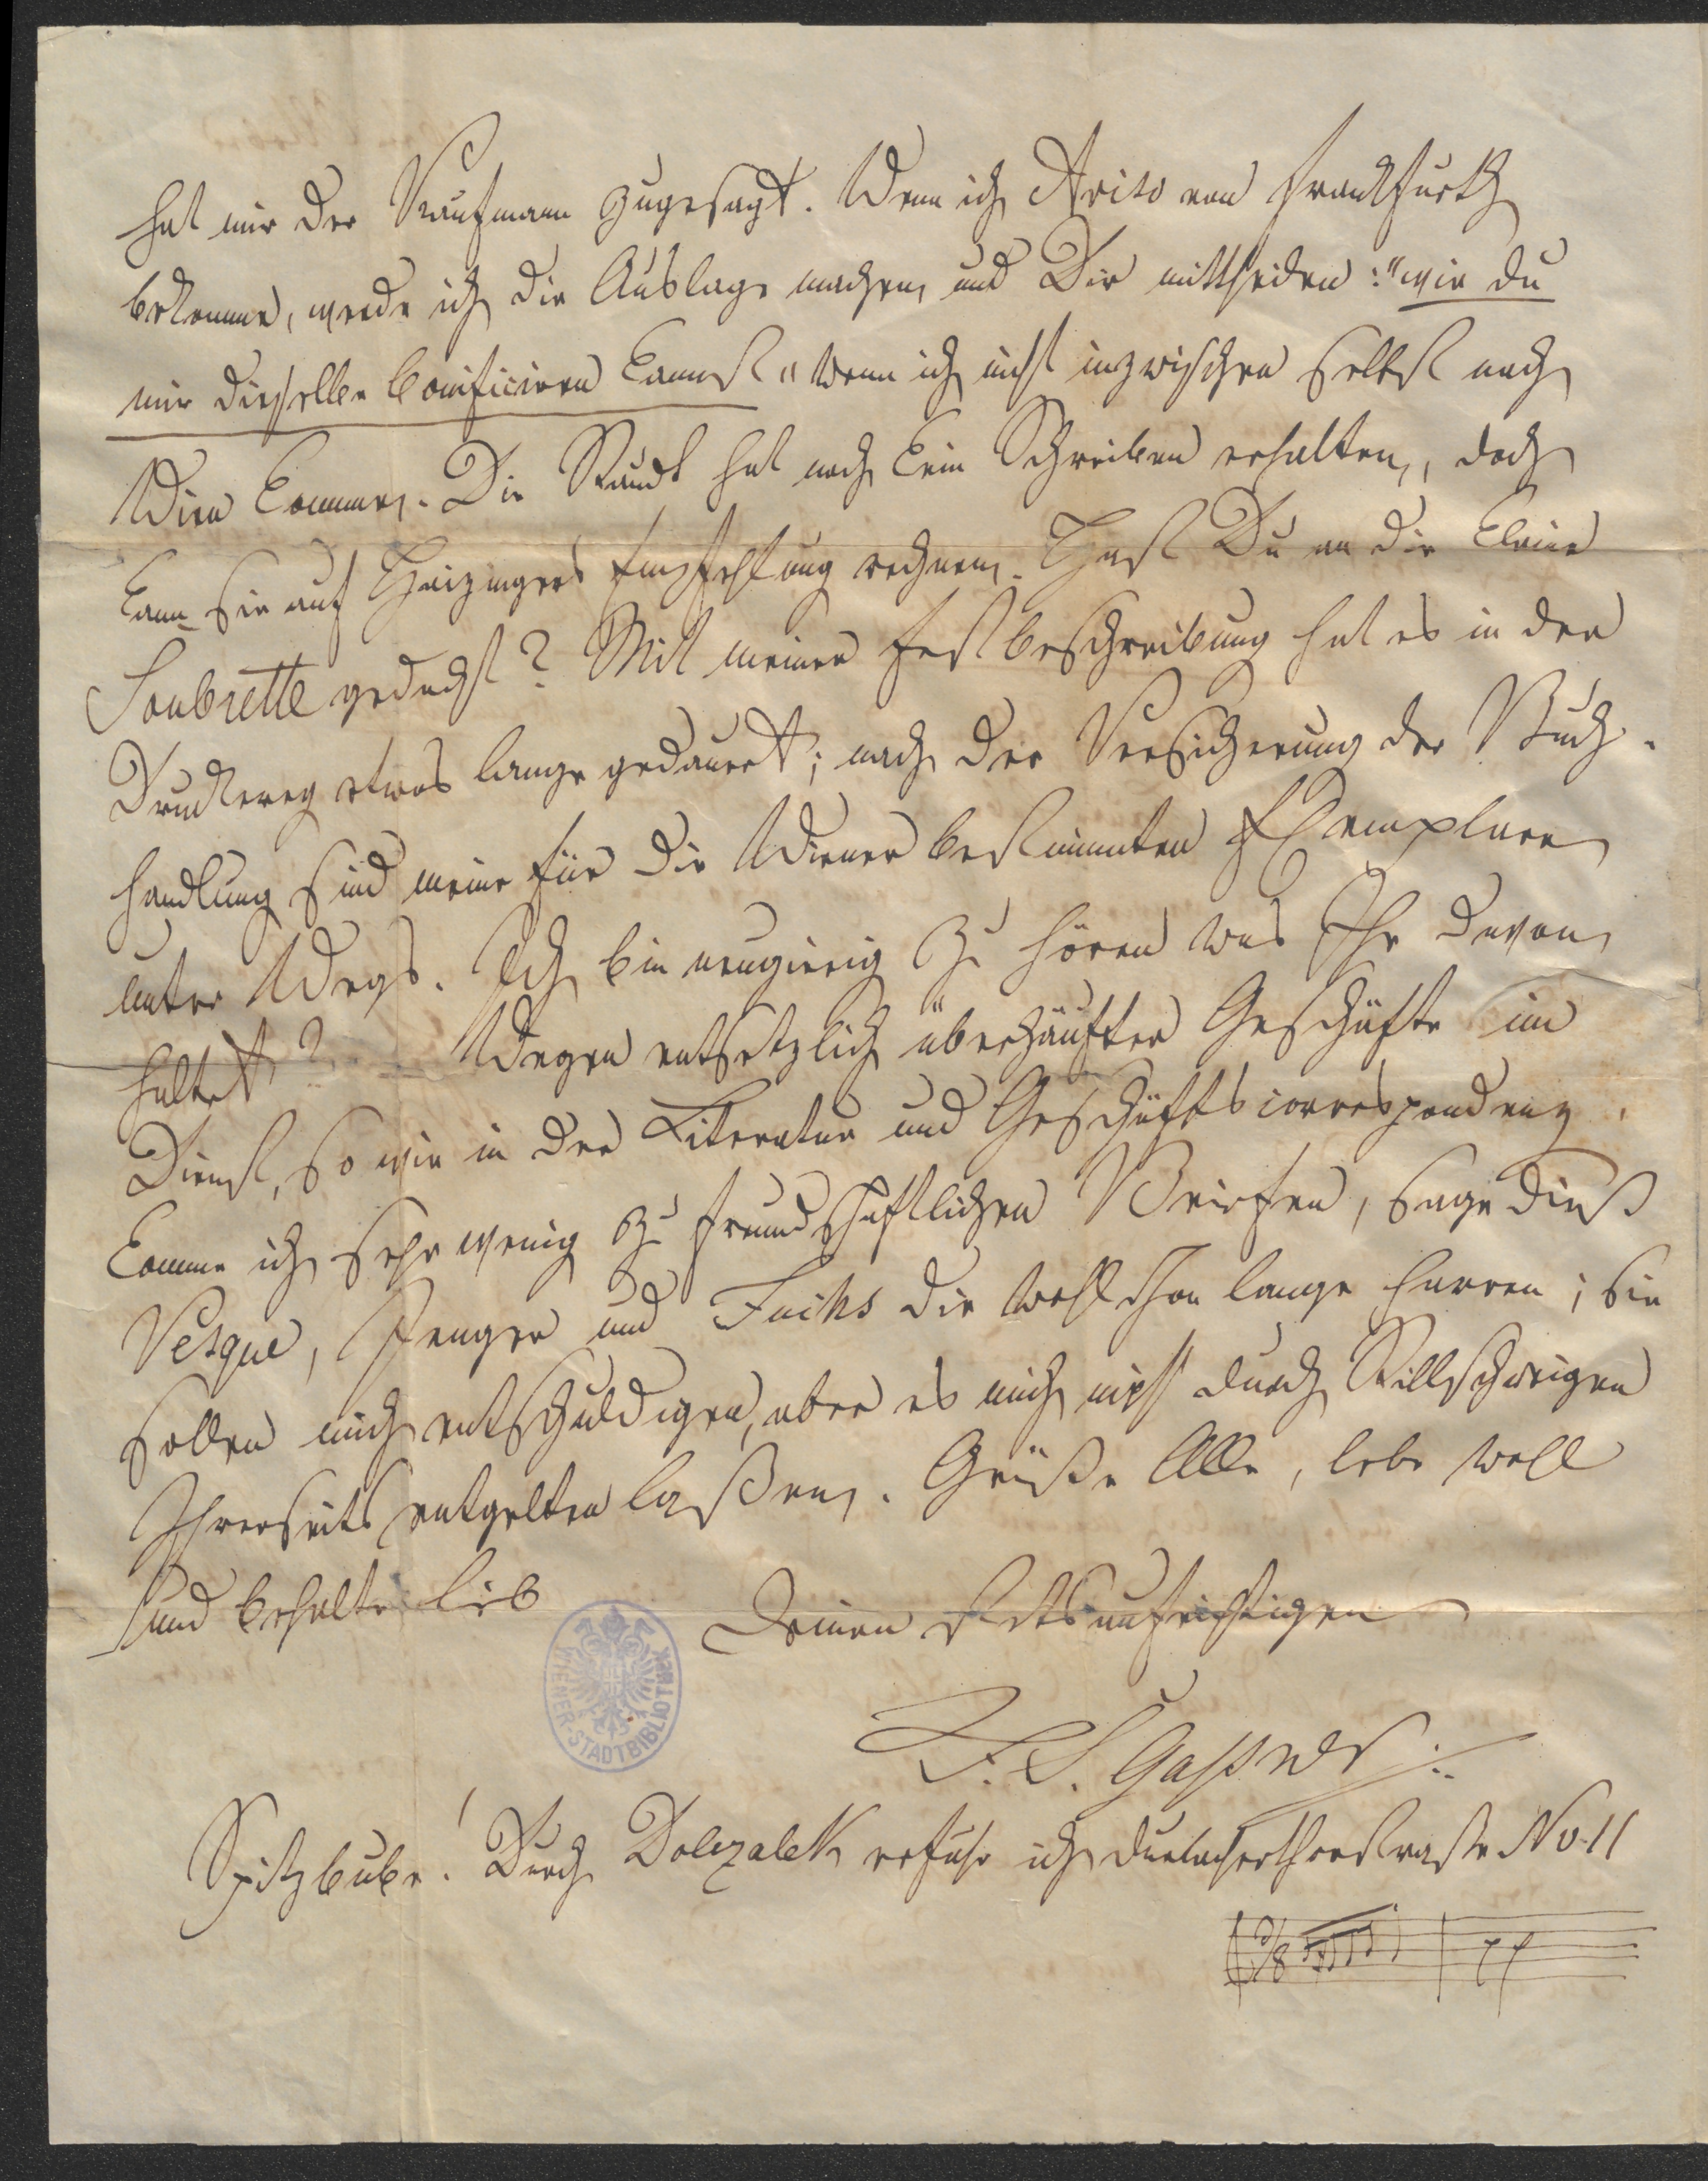 hat mir der Kaufmann zugesagt. Wenn ich Aviso von Frankfurth
bekomme, werde ich die Auslage machen und Dir mittheilen: "wie du
mir dieselbe bonificiren kannst" wenn ich nicht inzwischen selbst nach
Wien komme. Die Staudt hat noch kein Schreiben erhalten, doch
kann sie auf Haizingers Empfehlung rechnen. Hast Du an die kleine
Soubrette gedacht? Mit meiner Festbeschreibung hat es in der
Druckerey etwas lange gedauert; nach der Versicherung der Buch-
handlung sind meine für die Wiener bestimmten Exemplare
unter Wegs. Ich bin neugierig zu hören was Ihr davon
haltet? Wegen entsetzlich überhäufter Geschäfte im
Dienst, so wie in der Literatur und Geschäftscorrespondenz,
komme ich sehr wenig zu freundschaftlichen Briefen, sage dieß
Vesque, und Fuchs die wohl schon lange harren; sie
sollen mich entschuldigen, aber es mich nicht durch Stillschweigen
Ihrerseits entgelten laßen. Grüße Alle, lebe wohl
und behalte lieb
Deinen stets aufrichtigen
F. S. Gaßner
WIENER-STADTBIBLIOTHEK
Spitzbube! Durch Dolezalek erfuhr ich durlacherthorstraße No 11
3/8